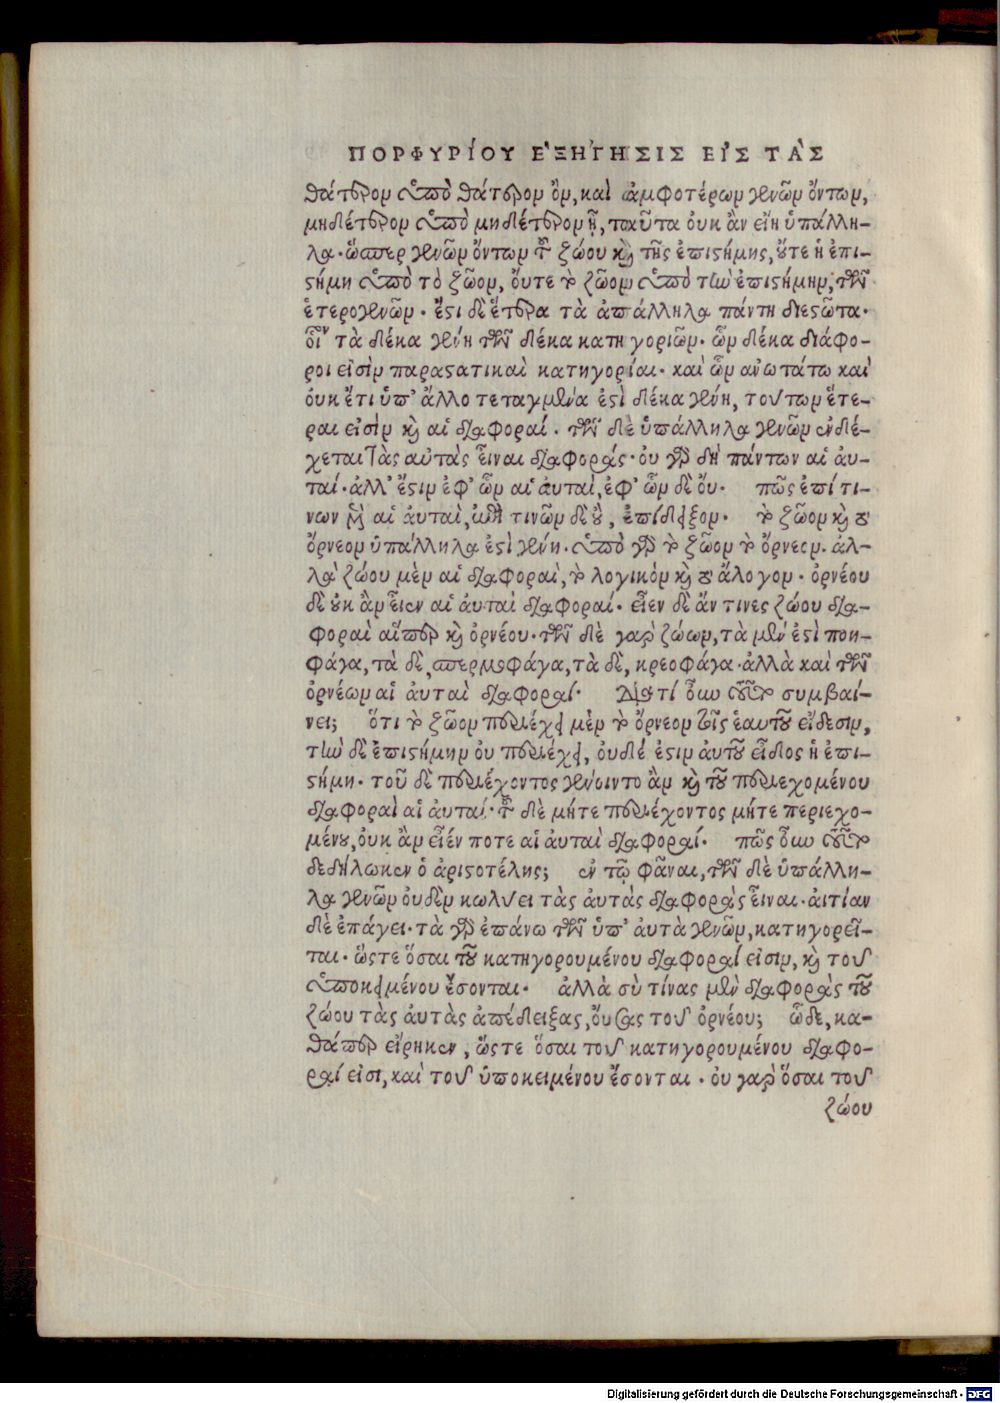 ΠΟΡΦΥΡΊΟΥ ἘΞΉΓΗΣΙΣ ΕἸΣ ΤᾺΣ
θάτερον ὑπὸ θάτερον ὂν, καὶ ἀμφοτέρων γενῶν ὄντων,
μηδέτερον ὑπὸ μηδέτερον ᾖ, ταῦτα ὀυκ ἂν εἴη ὑπάλλη-
λα· ὥσπερ γενῶν ὄντων τοῦ ζώου καὶ τῆς ἐπιστήμης, οὔτε ἡ ἐπι-
στήμη ὑπὸ τὸ ζῶον, ὄυτε τὸ ζῶον ὑπὸ τὴν ἐπιστήμην, τῶν
ἑτερογενῶν· ἔστι δὲ ἕτερα τὰ ἀπάλληλα πάντη διεστῶτα·
οἷον τὰ δέκα γένη τῶν δέκα κατηγοριῶν· ὧν δέκα διάφο-
ροι εἰσὶν παραστατικαὶ κατηγορίαι· καὶ ὧν ἀνωτάτω καὶ
ὀυκ ἔτι ὑπ' ἄλλο τεταγμένα ἐστὶ δέκα γένη, τούτων ἕτε-
ραι εἰσὶν καὶ αἱ διαφοραί· τῶν δὲ ὑπάλληλα γενῶν ἐνδέ-
χεται τὰς αὐτὰς εἶναι διαφοράς· ὀυ γὰρ δὴ πάντων αἱ ἀυ-
ταί· ἀλλ' ἔστιν ἐφ' ὧν αἱ ἀυταὶ, ἐφ' ὧν δὲ ὄυ· πῶς ἐπί τι-
νων μὲν αἱ ἀυταὶ, ἐπὶ τινῶν δὲ οὔ, ἐπίδειξον· τὸ ζῶον καὶ τὸ
ὄρνεον ὑπάλληλα ἐστὶ γένη· ὑπὸ γὰρ τὸ ζῶον τὸ ὄρνεον· ἀλ-
λὰ ζώου μὲν αἱ διαφοραὶ, τὸ λογικὸν καὶ τὸ ἄλογον· ὀρνέου
δὲ οὐκ ἂν εἶεν αἱ ἀυταὶ διαφοραί· εἶεν δὲ ἄν τινες ζώου δια-
φοραὶ αἵπερ καὶ ὀρνέου· τῶν δὲ γὰρ ζώων, τὰ μέν ἐστὶ ποη-
φάγα, τὰ δὲ, σπερμοφάγα, τὰ δὲ, κρεοφάγα· ἀλλὰ καὶ τῶν
ὀρνέων αἱ ἀυταὶ διαφοραί· Διατί ὄυν τοῦτο συμβαί-
νει; ὅτι τὸ ζῶον περιέχει μὲν τὸ ὄρνεον τοῖς ἑαυτοῦ εἴδεσιν,
τὴν δὲ ἐπιστήμην ὀυ περιέχει, ὀυδέ ἐστιν ἀυτοῦ εἶδος ἡ ἐπι-
στήμη· τοῦ δὲ περιέχοντος γένοιντο ἂν καὶ τοῦ περιεχομένου
διαφοραὶ αἱ ἀυταί· τοῦ δὲ μήτε περιέχοντος μήτε περιεχο-
μένου, ὀυκ ἂν εἶέν ποτε αἱ ἀυταὶ διαφοραί· πῶς ὄυν τοῦτο
δεδήλωκεν ὁ ἀριστοτέλης; ἐν τῷ φᾶναι, τῶν δὲ ὑπάλλη-
λα γενῶν ὀυδὲν κωλύει τὰς ἀυτὰς διαφορὰς εἶναι· ἀιτίαν
δὲ ἐπάγει· τὰ γὰρ ἐπάνω τῶν ὑπ' ἀυτὰ γενῶν, κατηγορεῖ-
ται· ὥστε ὅσαι τοῦ κατηγορουμένου διαφοραί εἰσιν, καὶ τοῦ
ὑποκειμένου ἔσονται· ἀλλὰ σὺ τίνας μὲν διαφορὰς τοῦ
ζώου τὰς ἀυτὰς ἀπέδειξας, ὄυσας τοῦ ὀρνέου; ὧδε, κα-
θάπερ εἴρηκεν, ὥστε ὅσαι τοῦ κατηγορουμένου διαφο-
ραί εἰσι, καὶ τοῦ ὑποκειμένου ἔσονται· ὀυ γαρ ὅσαι τοῦ
ζώου
Digitalisierung gefördert durch die Deutsche Forschungsgemeinschaft - DFG